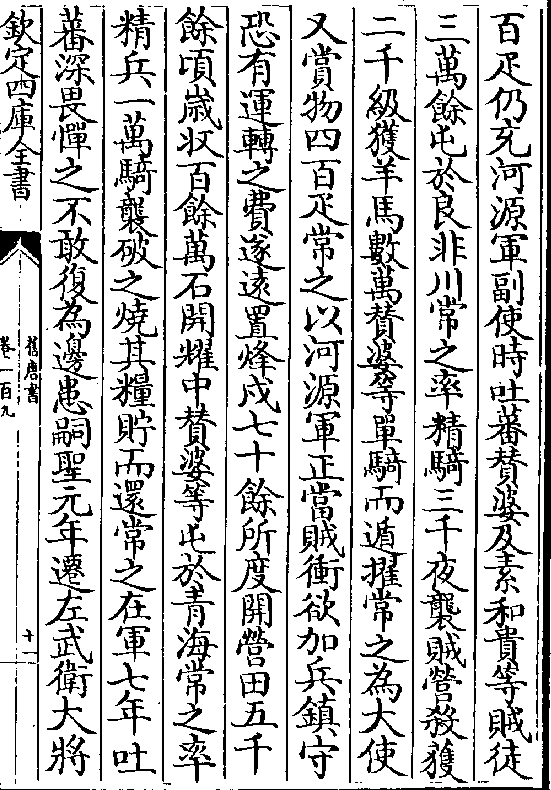 百疋仍充河源軍副使時吐蕃賛婆及素和貴等賊徒
三萬餘屯於良非川常之率精騎三千夜襲賊營殺獲
二千級獲羊馬數萬賛婆等單騎而遁擢常之為大使
又賞物四百疋常之以河源軍正當賊衝欲加兵鎮守
恐有運轉之費遂逺置烽戍七十餘所度開營田五千
餘頃歲收百餘萬石開耀中賛婆等屯於青海常之率
精兵一萬騎襲破之燒其糧貯而還常之在軍七年吐
蕃深畏憚之不敢復為邊患嗣聖元年遷左武衛大將
欽定四庫全書
舊唐書
卷一百九
十一